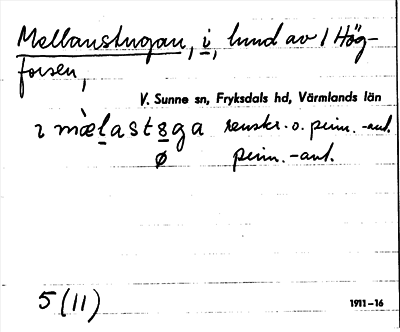 Mellanstugan, i, hund av 1 Hög-
forsen,
V. Sunne sn, Fryksdals hd, Värmlands län
ɩ mæ̀ɫastsga renskr. o. prim. -ant.
ø prim. -ant.
5(11)
1911-16